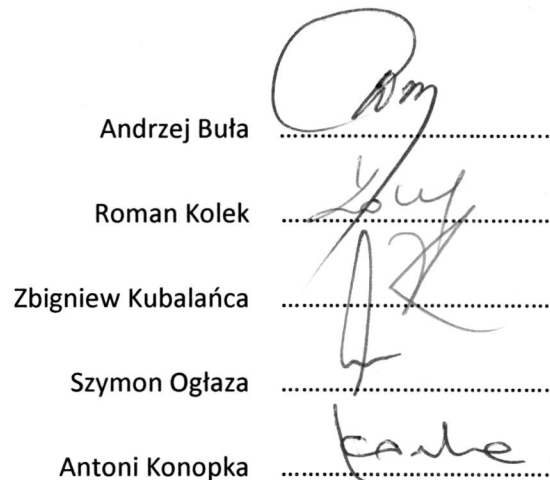 Andrzej Buła ........................................
Roman Kolek ........................................
Zbigniew Kubalańca ........................................
Szymon Ogłaza ........................................
Antoni Konopka ........................................